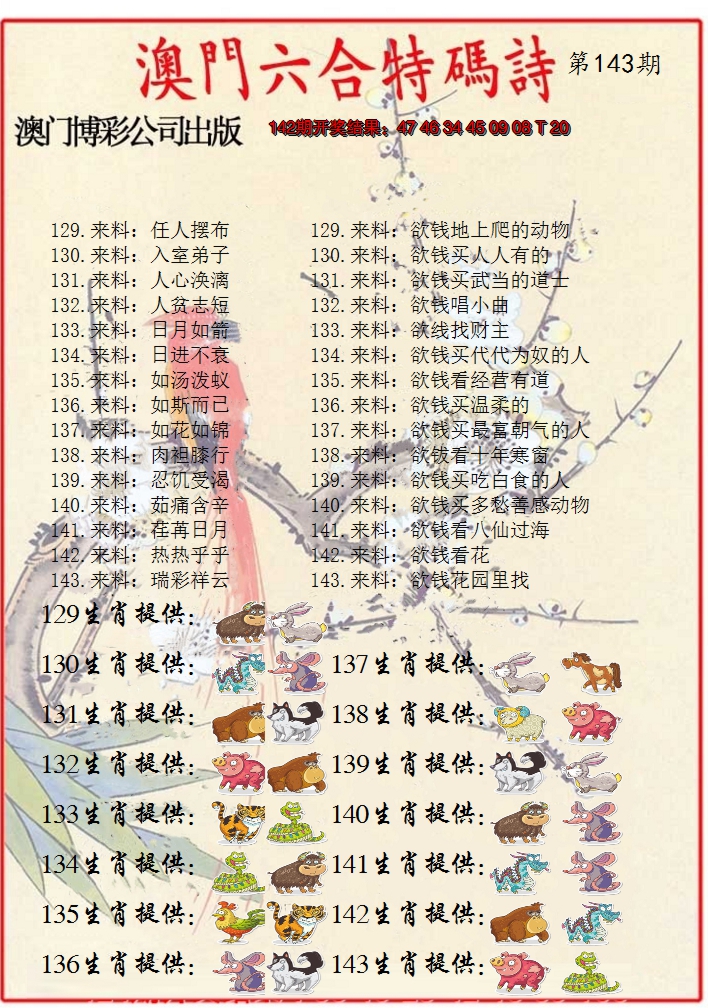 澳門六合特碼詩 第143期
澳门博彩公司出版 142期开奖结果：47 46 34 45 09 08 T 20
129.来料：任人摆布 129.来料：欲钱地上爬的动物
130.来料：入室弟子 130.来料：欲钱买人人有的
131.来料：人心涣漓 131.来料：欲钱买武当的道士
132.来料：人贫志短 132.来料：欲钱唱小曲
133.来料：日月如箭 133.来料：欲线找财主
134.来料：日进不衰 134.来料：欲钱买代代为奴的人
135.来料：如汤泼蚁 135.来料：欲钱看经营有道
136.来料：如斯而已 136.来料：欲钱买温柔的
137.来料：如花如锦 137.来料：欲钱买最富朝气的人
138.来料：肉袒膝行 138.来料：欲钹看十年寒窗
139.来料：忍饥受渴 139.来料：欲钱买吃白食的人
140.来料：茹痛含辛 140.来料：欲钱买多愁善感动物
141.来料：荏苒日月 141.来料：欲钱看八仙过海
142.来料：热热乎乎 142.来料：欲钱看花
143.来料：瑞彩祥云 143.来料：欲钱花园里找
129生肖提供：
130生肖提供： 137生肖提供：
131生肖提供： 138生肖提供：
132生肖提供： 139生肖提供：
133生肖提供： 140生肖提供：
134生肖提供： 141生肖提供：
135生肖提供： 142生肖提供：
136生肖提供： 143生肖提供：